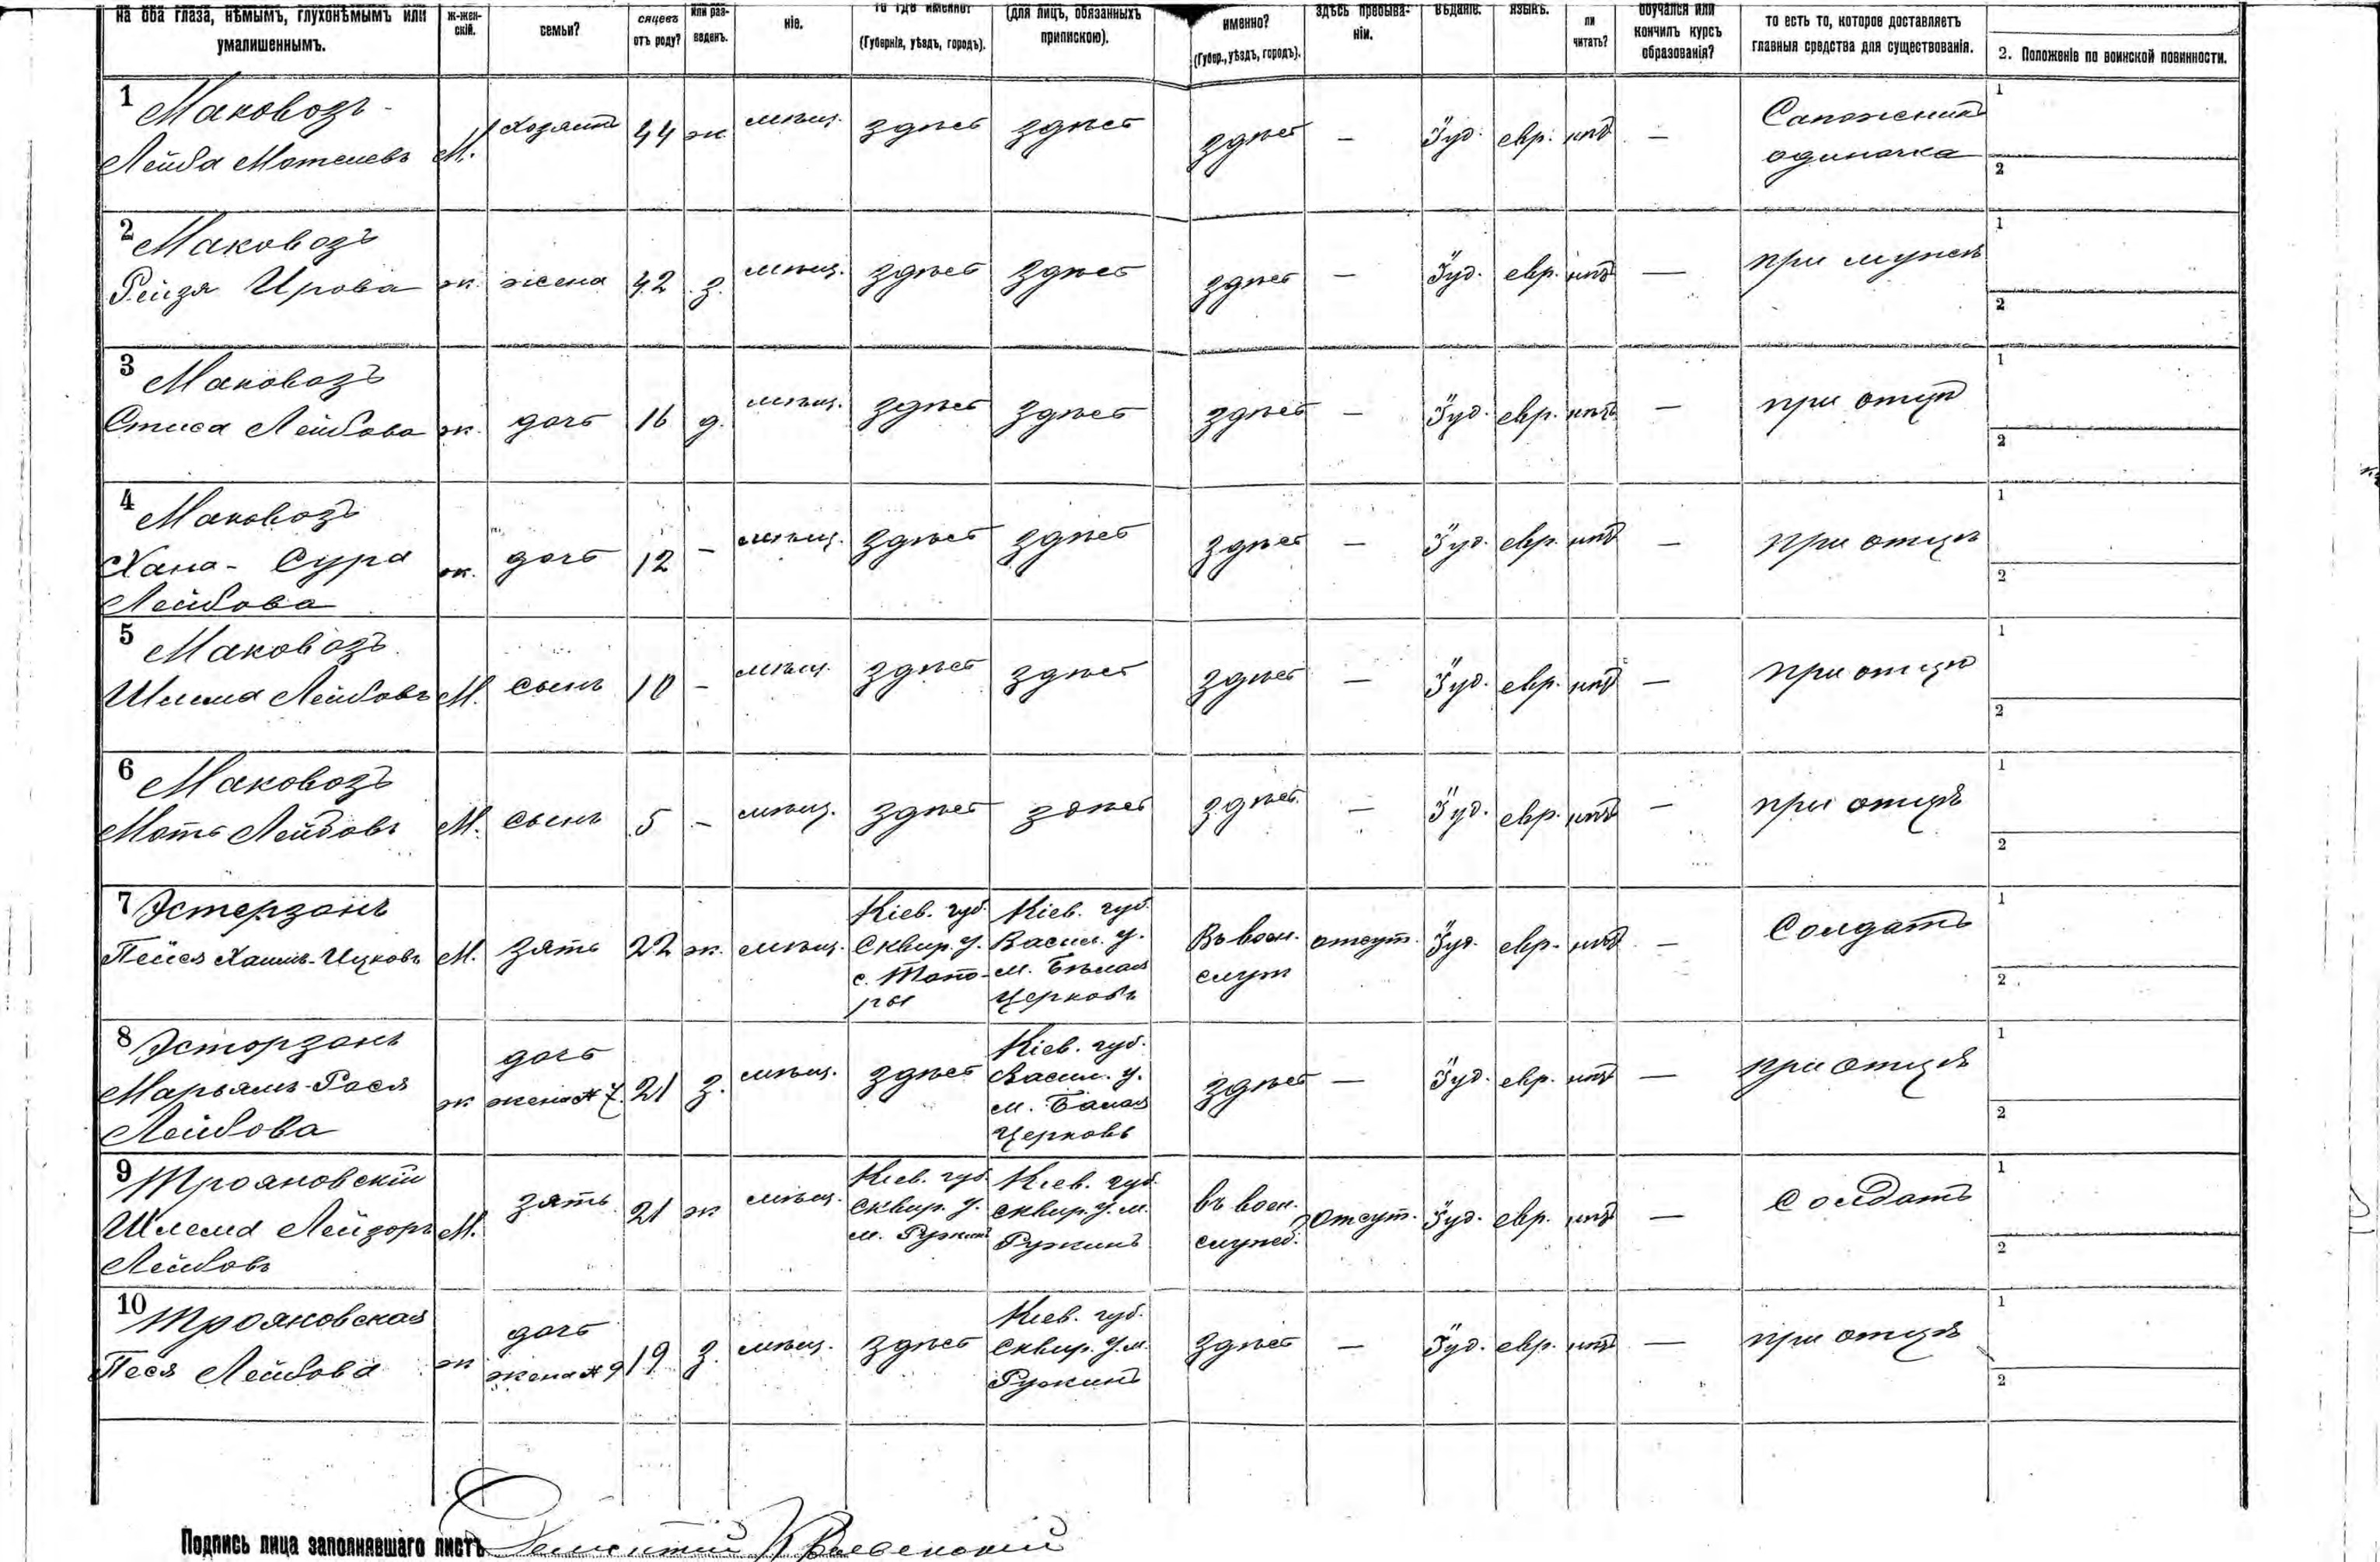 на оба глаза, нѣмымъ, глухонѣмымъ или умалишеннымъ.
ж-жен-скій.
семьи?
сяцевъ отъ роду?
или раз-веденъ.
ніе.
то гдѣ именно? (Губернія, уѣздъ, городъ).
(для лицъ, обязанныхъ припискою).
именно? (Губер., уѣздъ, городъ).
здѣсь пребыва-ніи.
вѣданіе.
языкъ.
ли читать?
обучался или кончилъ курсъ образованія?
то есть то, которое доставляетъ главныя средства для существованія.
2. Положеніе по воинской повинности.
1 Маковозъ
Лейба Мотелевъ М. хозяинъ 44 ж мѣщ. здѣсь здѣсь здѣсь — Іуд. евр. нѣтъ — Сапожникъ одиночка 1 2
2 Маковозъ
Рейзя Ирова ж. жена 42 з. мѣщ. здѣсь здѣсь здѣсь — Іуд. евр. нѣтъ — при мужѣ 1 2
3 Маковозъ
Лейбова ж. дочь 16 д. мѣщ. здѣсь здѣсь здѣсь — Іуд. евр. нѣтъ — при отцѣ 1 2
4 Маковозъ
Хана- Сура
Лейбова ж. дочь 12 — мѣщ. здѣсь здѣсь здѣсь — Іуд. евр. нѣтъ — при отцѣ 1 2
5 Маковозъ
Шлема Лейбовъ М. сынъ 10 — мѣщ. здѣсь здѣсь здѣсь — Іуд. евр. нѣтъ — при отцѣ 1 2
6 Маковозъ
Моть Лейбовъ М. сынъ 5 — мѣщ. здѣсь здѣсь здѣсь — Іуд. евр. нѣтъ — при отцѣ 1 2
7 Эстерзонъ
Пейся Хаимъ-Ицковъ М. зять 22 ж. мѣщ. Кіев. губ. Сквир. у. с. Топо-ры Кіев. губ. Васил. у. м. Бѣлая Церковь Въ воен. служ отсут. Іуд. евр. нѣтъ — Солдатъ 1 2
8 Эсторзонъ
Марьямъ-Рася
Лейбова ж дочь жена № 7. 21 з. мѣщ. здѣсь Кіев. губ. Васил. у. м. Бѣлая Церковь здѣсь — Іуд. евр. нѣтъ — при отцѣ 1 2
9 Трояновскій
Шлема Лейзоръ
Лейбовъ М. зять 21 ж мѣщ. Кіев. губ. Сквир. у. м. Ружинъ Кіев. губ. Сквир. у. м. Ружинъ въ воен. служб. отсут. Іуд. евр. нѣтъ — Солдатъ 1 2
10 Трояновская
Песя Лейбова ж дочь жена № 9 19 з. мѣщ. здѣсь Кіев. губ. Сквир. у. м. Ружинъ здѣсь — Іуд. евр. нѣтъ — при отцѣ 1 2
Подпись лица заполнявшаго листъ